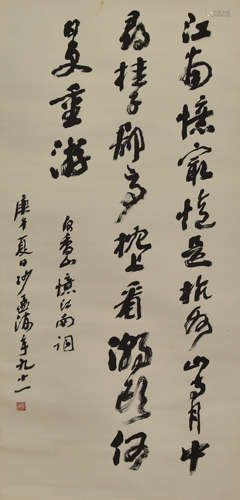 江南憶最憶是杭州山寺月中
尋桂子郡亭枕上看潮頭何
日更重遊
白香山憶江南詞
庚午夏日沙孟海年九十一